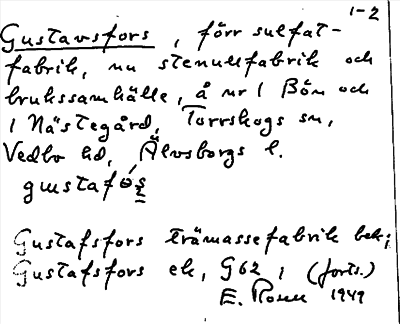 1-2
Gustavsfors, förr sulfat-
fabrik, nu stenullfabrik och
brukssamhälle, å nr 1 Bön och
1 Nästegård, Torrskogs sn,
Vedbo hd, Älvsborgs l.
gustafó
Gustafsfors trämassefabrik bek;
Gustafsfors ek, G62, (forts.)
E. Rosen 1949